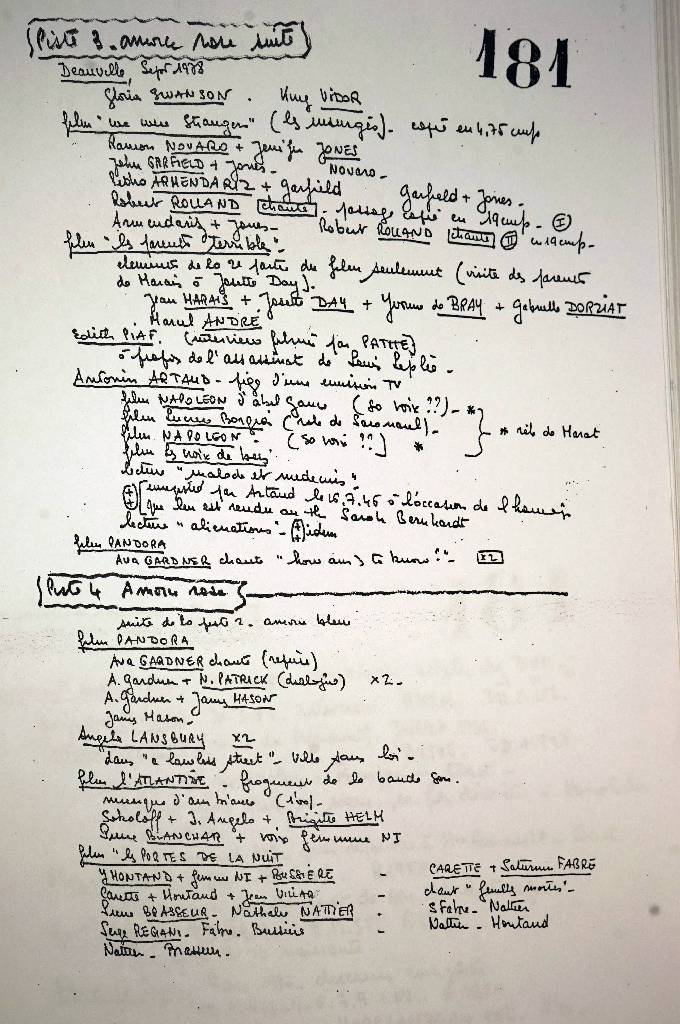 Piste 3 - amorce rose suite
181
Deauville, Sept 1978
Gloria SWANSON . King VIDOR
film "we were Strangers" (les insurgés) - copié en 4,75 cm/s
Ramon NOVARO + Jennifer JONES
John GARFIELD + Jones - Novaro -
Pedro ARMENDARIZ + Garfield Garfield + Jones -
Robert ROLLAND chante - passage copié en 19 cm/s - (I)
Armendariz + Jones - Robert ROLLAND chante (II) en 19 cm/s -
film "les parents terribles" -
elements de la 2e partie du film seulement (visite des parents
de Marais à Josette Day).
Jean MARAIS + Josette DAY + Yvonne de BRAY + Gabrielle DORZIAT
Marcel ANDRÉ
Edith PIAF. (interview filmée par PATHE)
à propos de l'assassinat de Louis Leplée -
Antonin ARTAUD - pige d'une emission TV
film NAPOLEON d'Abel Gance (sa voix ??) - *
film Lucrece Borgia (role de Savonarol) -
film NAPOLEON - (sa voix ??) *
* rôle de Marat
film les croix de bois
lecture "malade et medecins" -
enregistré par Artaud le 16.7.46 à l'occasion de l'hommage
que lui est rendu au th Sarah Bernhardt
lecture "alienations" - idem
film PANDORA
Ava GARDNER chante "how am I to know?" - x2
Piste 4 Amorce rose
suite de la piste 2 - amorce bleue
film PANDORA
Ava GARDNER chante (reprise)
A. Gardner + N. PATRICK (dialogue) x2 -
A. Gardner + James MASON
James Mason -
Angela LANSBURY x2
dans "a lawless street" - ville sans loi -
film l'ATLANTIDE - fragment de la bande son.
musique d'ambiance (1'00) -
Sokoloff + J. Angelo + Brigitte HELM
Pierre BLANCHAR + voix feminine NI
film "les PORTES DE LA NUIT
Y MONTAND + femme NI + BUSSIERE - CARETTE + Saturnin FABRE
Carette + Montand + Jean VILAR - chant "feuilles mortes" -
Pierre BRASSEUR - Nathalie NATTIER - S Fabre - Nattier
Serge REGIANI - Fabre - Bussière - Nattier - Montand
Nattier - Brasseur -